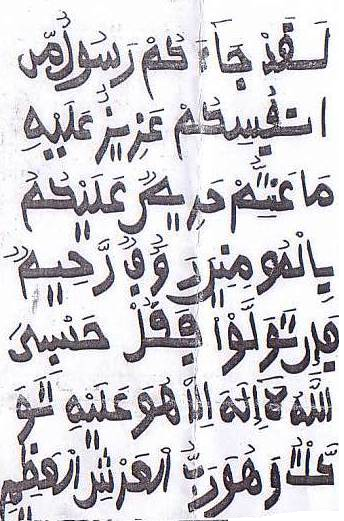 لَقَدْ جَآءَ كُمْ رَسُولٌ مِّن
اَنفُسِكُمْ عَزِيزٌ عَلَيْهِ
مَا عَنِتُّمْ حَرِيصٌ عَلَيْكُمْ
بِالْمُومِنِينَ رَءُوفٌ رَّحِيمٌ
فَإِن تَوَلَّوْا فَقُلْ حَسْبِيَ
اللَّهُ لَآ إِلَهَ إِلَّا هُوَ عَلَيْهِ تَوَ
كَّلْتُ وَهُوَ رَبُّ الْعَرْشِ الْعَظِيمِ